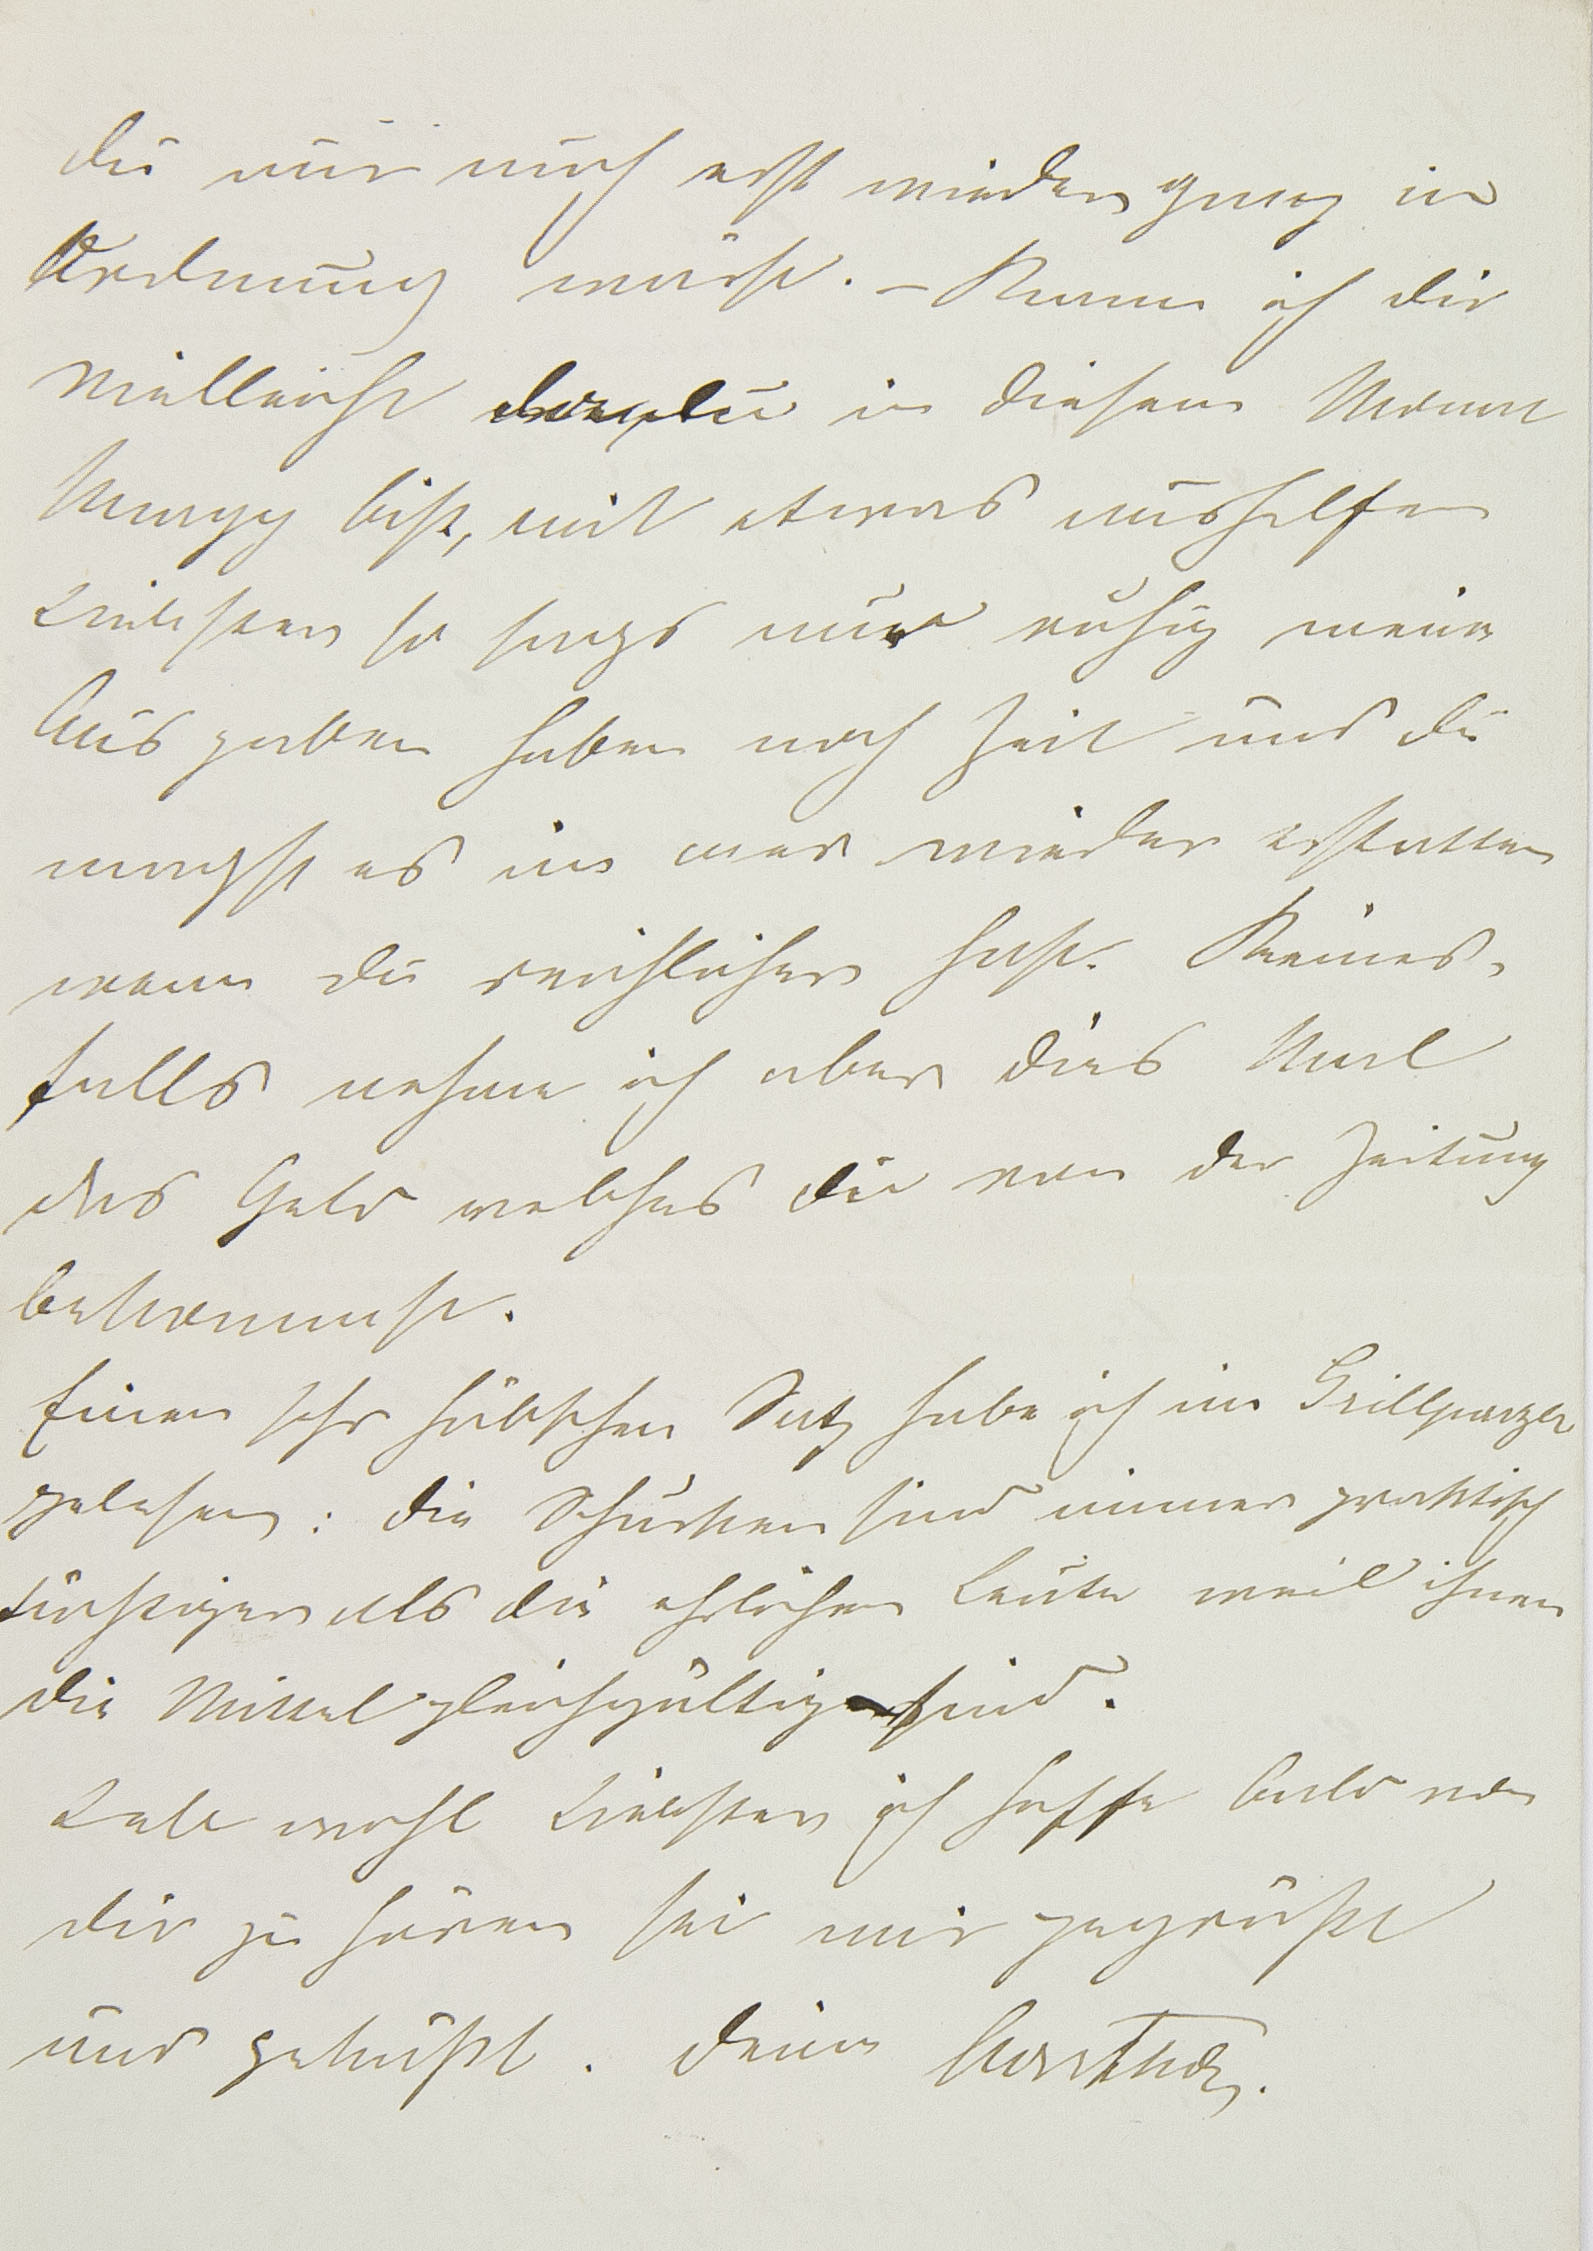 du nur auch erst wieder ganz in
Ordnung wärst. – Kann ich dir
vielleicht da du in diesem Monat
knapp bist, mit etwas aushelfen
Liebster so sags nur ruhig meine
Ausgaben haben noch Zeit und du
magst es im wieder erstatten
wenn du reichlicher hast. Keines-
falls nehme ich aber dies Mal
das Geld welches du von der Zeitung
bekommst.
Einen sehr hübschen Satz habe ich im Grillparzer
gelesen: die Schurken sind immer praktisch
tüchtiger als die ehrlichen Leute weil ihnen
die Mittel gleichgültig sind.
Lebe wohl Liebster ich hoffe bald von
dir zu hören sei mir gegrüßt
und geküßt. deine Martha.